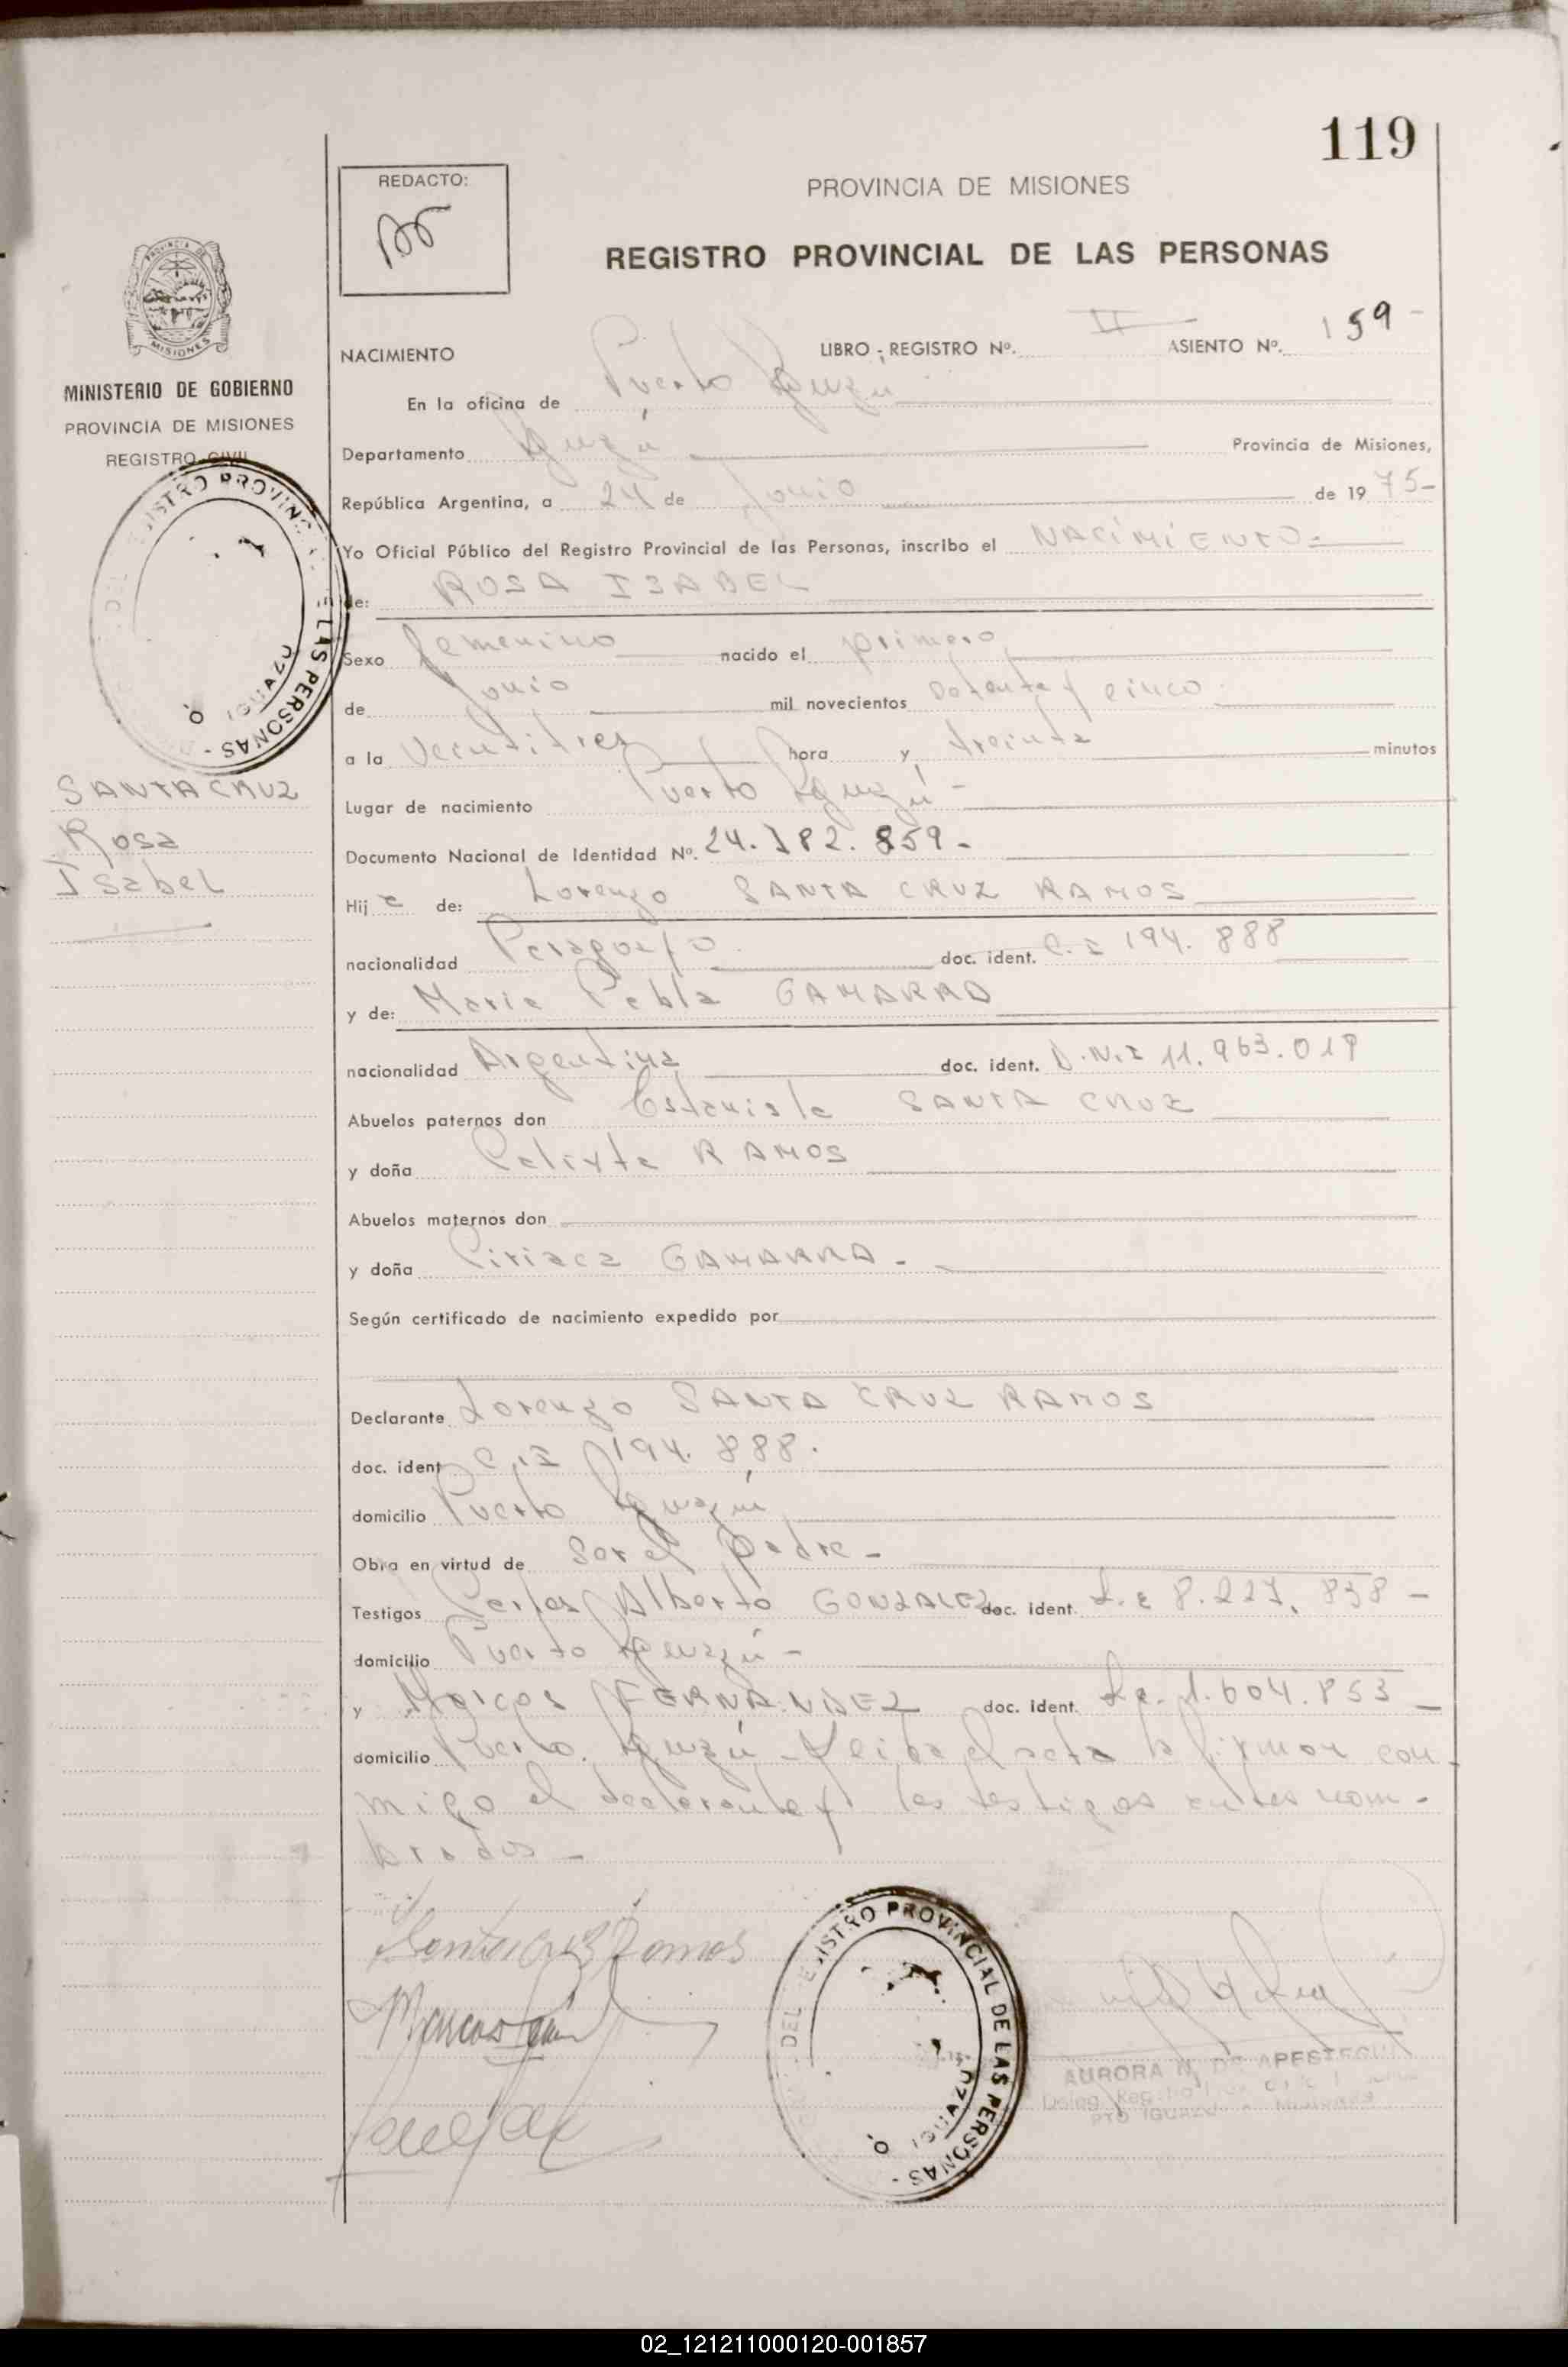 119
REDACTO:
PROVINCIA DE MISIONES
REGISTRO PROVINCIAL DE LAS PERSONAS
MISIONES
MINISTERIO DE GOBIERNO
PROVINCIA DE MISIONES
REGISTRO CIVIL
SANTA CRUZ
Rosa
Isabel
NACIMIENTO LIBRO - REGISTRO Nº. II ASIENTO Nº. 159 -
En la oficina de Puerto Iguazú
Departamento Iguazú Provincia de Misiones,
República Argentina, a 24 de Junio de 19 75-
Yo Oficial Público del Registro Provincial de las Personas, inscribo el NACIMIENTO-
de: ROSA ISABEL
Sexo femenino nacido el primero
de Junio mil novecientos setenta y cinco
a la veintitres hora y treinta minutos
Lugar de nacimiento Puerto Iguazú -
Documento Nacional de Identidad Nº. 24.182.859-
Hij a de: Lorenzo SANTA CRUZ RAMOS
nacionalidad Paraguayo doc. ident. C.I 194.888
y de: Maria Pabla GAMARRA
nacionalidad Argentina doc. ident. D.N.I 11.963.019
Abuelos paternos don Estanisla SANTA CRUZ
y doña Calixta RAMOS
Abuelos maternos don
y doña Ciriaca GAMARRA -
Según certificado de nacimiento expedido por
Declarante Lorenzo SANTA CRUZ RAMOS
doc. ident C.I 194.888.
domicilio Puerto Iguazú
Obra en virtud de ser el padre -
Testigos Carlos Alberto GONZALEZ doc. ident. L.E 8.227.838 -
domicilio Puerto Iguazú -
y Marcos FERNANDEZ doc. ident. L.E. 1.604.853 -
domicilio Puerto Iguazú - Leida el acta la firman con-
migo el declarante y los testigos antes nom-
brados -
Santacruz Ramos
Marcos
DEL REGISTRO PROVINCIAL DE LAS PERSONAS -
IGUAZU
AURORA N. DE APESTEGUI
PTO IGUAZU - Misiones
02_121211000120-001857